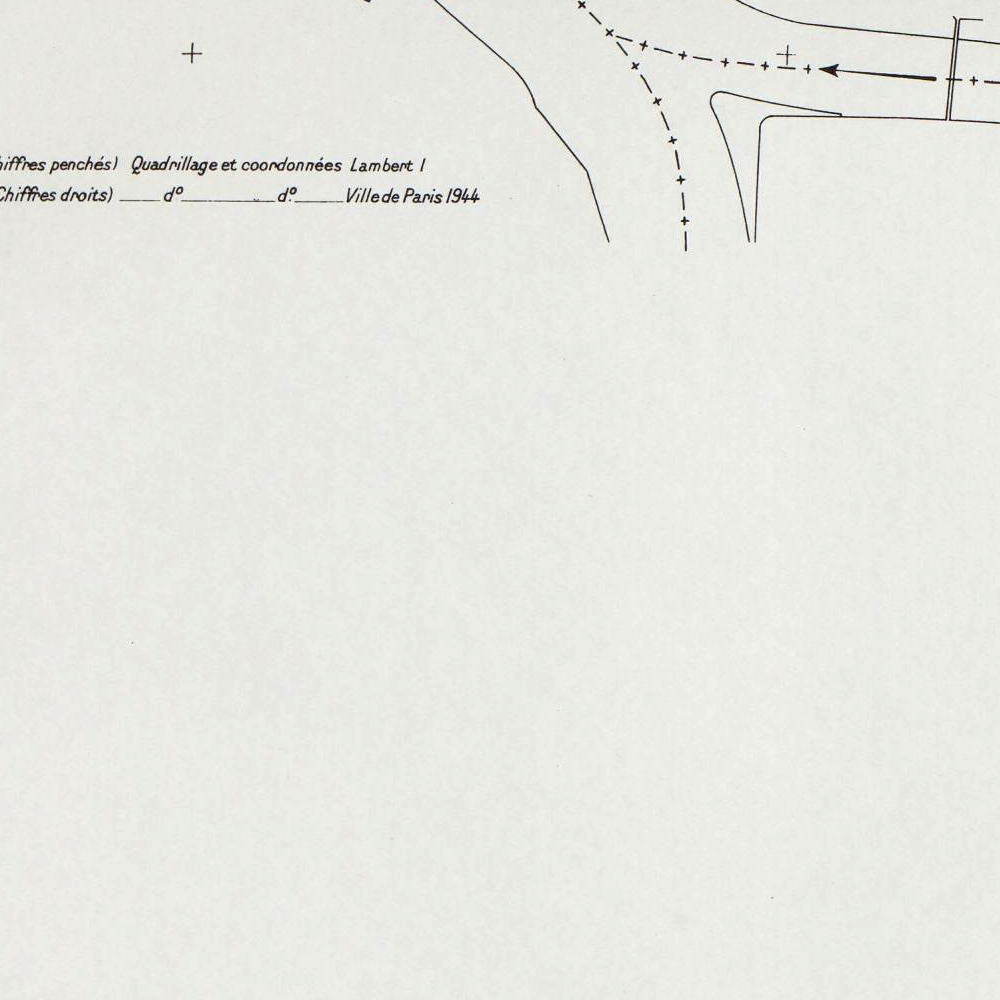 hiffres penchés) Quadrillage et coordonnées Lambert I
Chiffres droits) ____ d° ________ d°. ____ Ville de Paris 1944